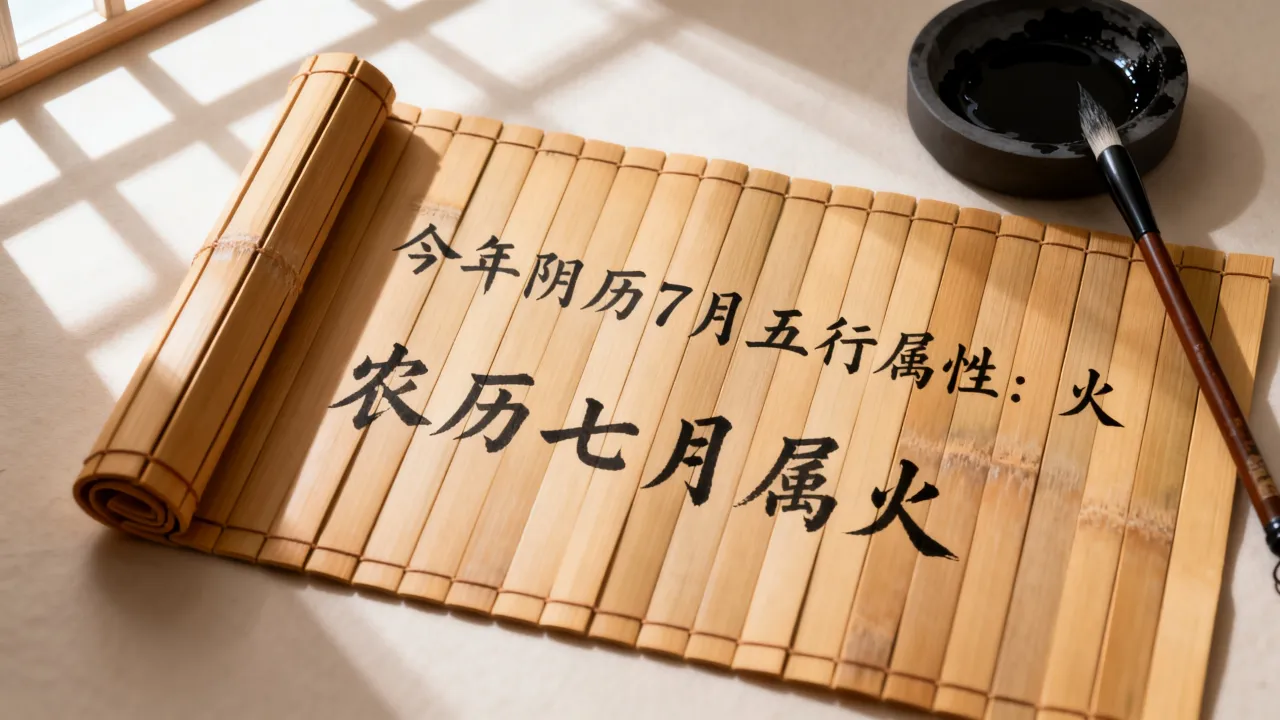 今年阴历7月五行属性：火
农历七月属火